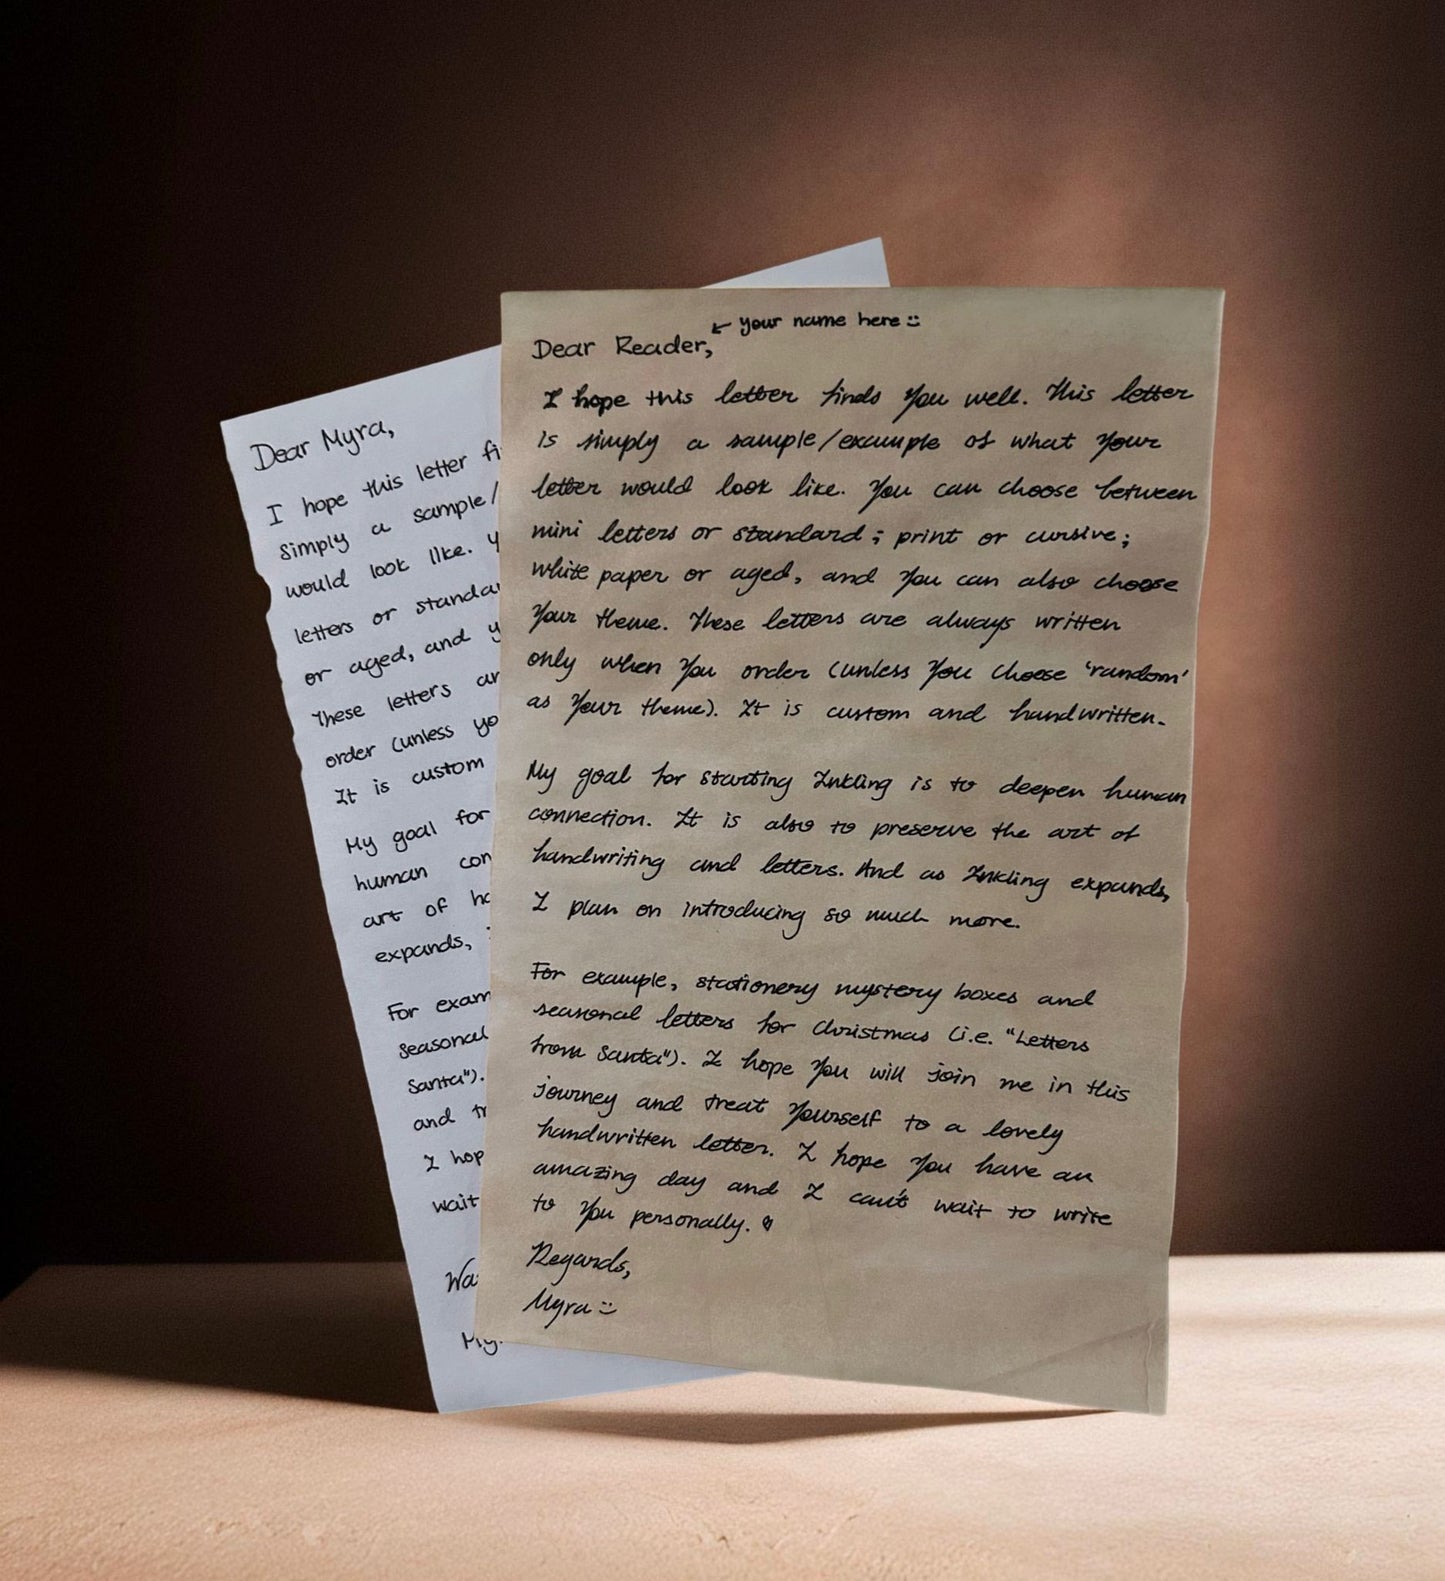 Dear Myra,
I hope this letter fi
simply a sample/
would look like. y
letters or standa
or aged, and y
These letters ar
order (unless yo
It is custom
My goal for
human con
art of ha
expands,
For exam
seasonal
Santa").
and tr
I hop
wait
Wa
My
your name here :)
Dear Reader,
I hope this letter finds you well. This letter
is simply a sample/example of what your
letter would look like. You can choose between
mini letters or standard; print or cursive;
white paper or aged, and you can also choose
your theme. These letters are always written
only when you order (unless you choose 'random'
as your theme). It is custom and handwritten.
My goal for starting Inkling is to deepen human
connection. It is also to preserve the art of
handwriting and letters. And as Inkling expands,
I plan on introducing so much more.
For example, stationery mystery boxes and
seasonal letters for Christmas (i.e. "Letters
from Santa"). I hope you will join me in this
journey and treat yourself to a lovely
handwritten letter. I hope you have an
amazing day and I can't wait to write
to you personally.
Regards,
Myra :)